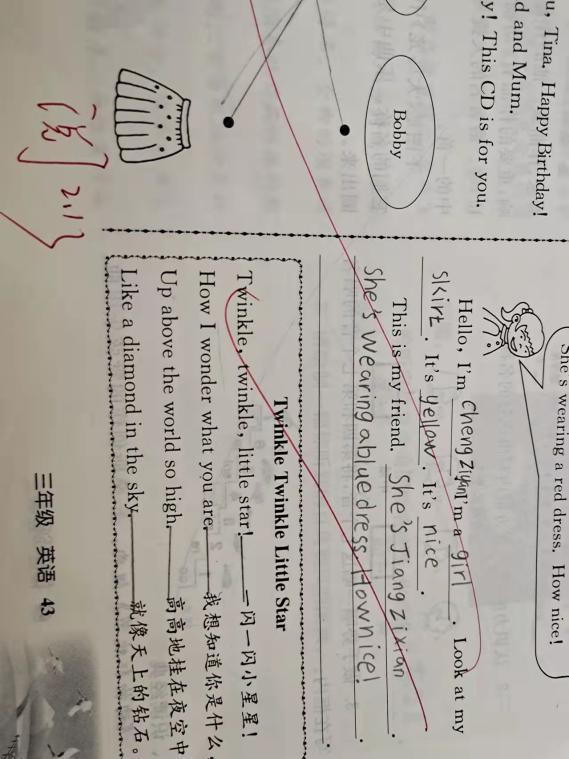 u, Tina. Happy Birthday!
d and Mum.
y! This CD is for you.
Bobby
She's wearing a red dress. How nice!
Hello, I'm Cheng ziyan I'm a girl. Look at my
skirt. It's yellow. It's nice.
This is my friend. She's Jiang zixian.
She's wearing a blue dress. How nice!
Twinkle Twinkle Little Star
Twinkle, twinkle, little star! 一闪一闪小星星!
How I wonder what you are, 我想知道你是什么,
Up above the world so high, 高高地挂在夜空中
Like a diamond in the sky. 就像天上的钻石。
三年级 英语 43
2.17